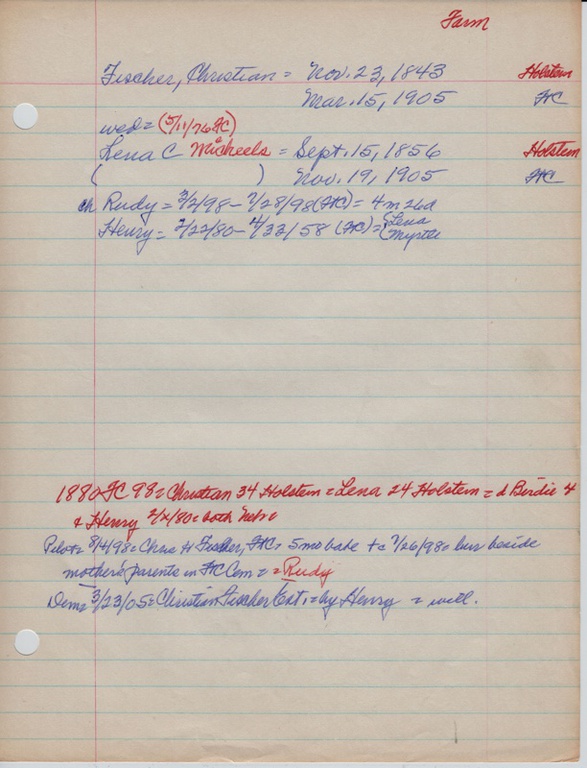 Farm
Fischer, Christian = Nov. 23, 1843 Holstein
Mar. 15, 1905 FC
wed = (5/11/76 FC)
Lena C Micheels = Sept. 15, 1856 Holstein
( ) Nov. 19, 1905 FC
ch Rudy = 3/2/98 - 7/28/98 (FC) = 4m 26d
Henry = 2/22/80 - 4/22/58 (FC) = {Lena
Myrtle
1880 FC 98 = Christian 34 Holstein = Lena 24 Holstein = d Birdie 4
& Henry 2/x/80 = both Nebr
Pilot = 8/4/98 = Chris H Fischer, FC = 5 mo babe + = 7/26/98 = bur beside
mother's parents in FC Cem = = Rudy
Dem = 3/23/05 = Christian Fischer Est, = by Henry = will.